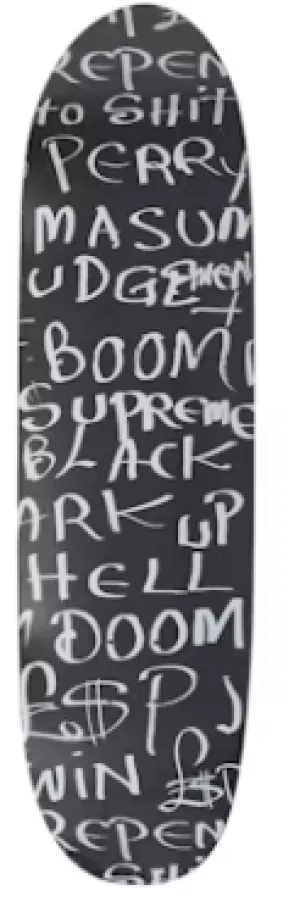 REPEN
to SHit
PERRY
MASUM
UDGEMEN
BOOM
SUPREME
BLACK
ARK UP
HELL
DOOM
£$P J
WIN £$P
REPEN
SHi